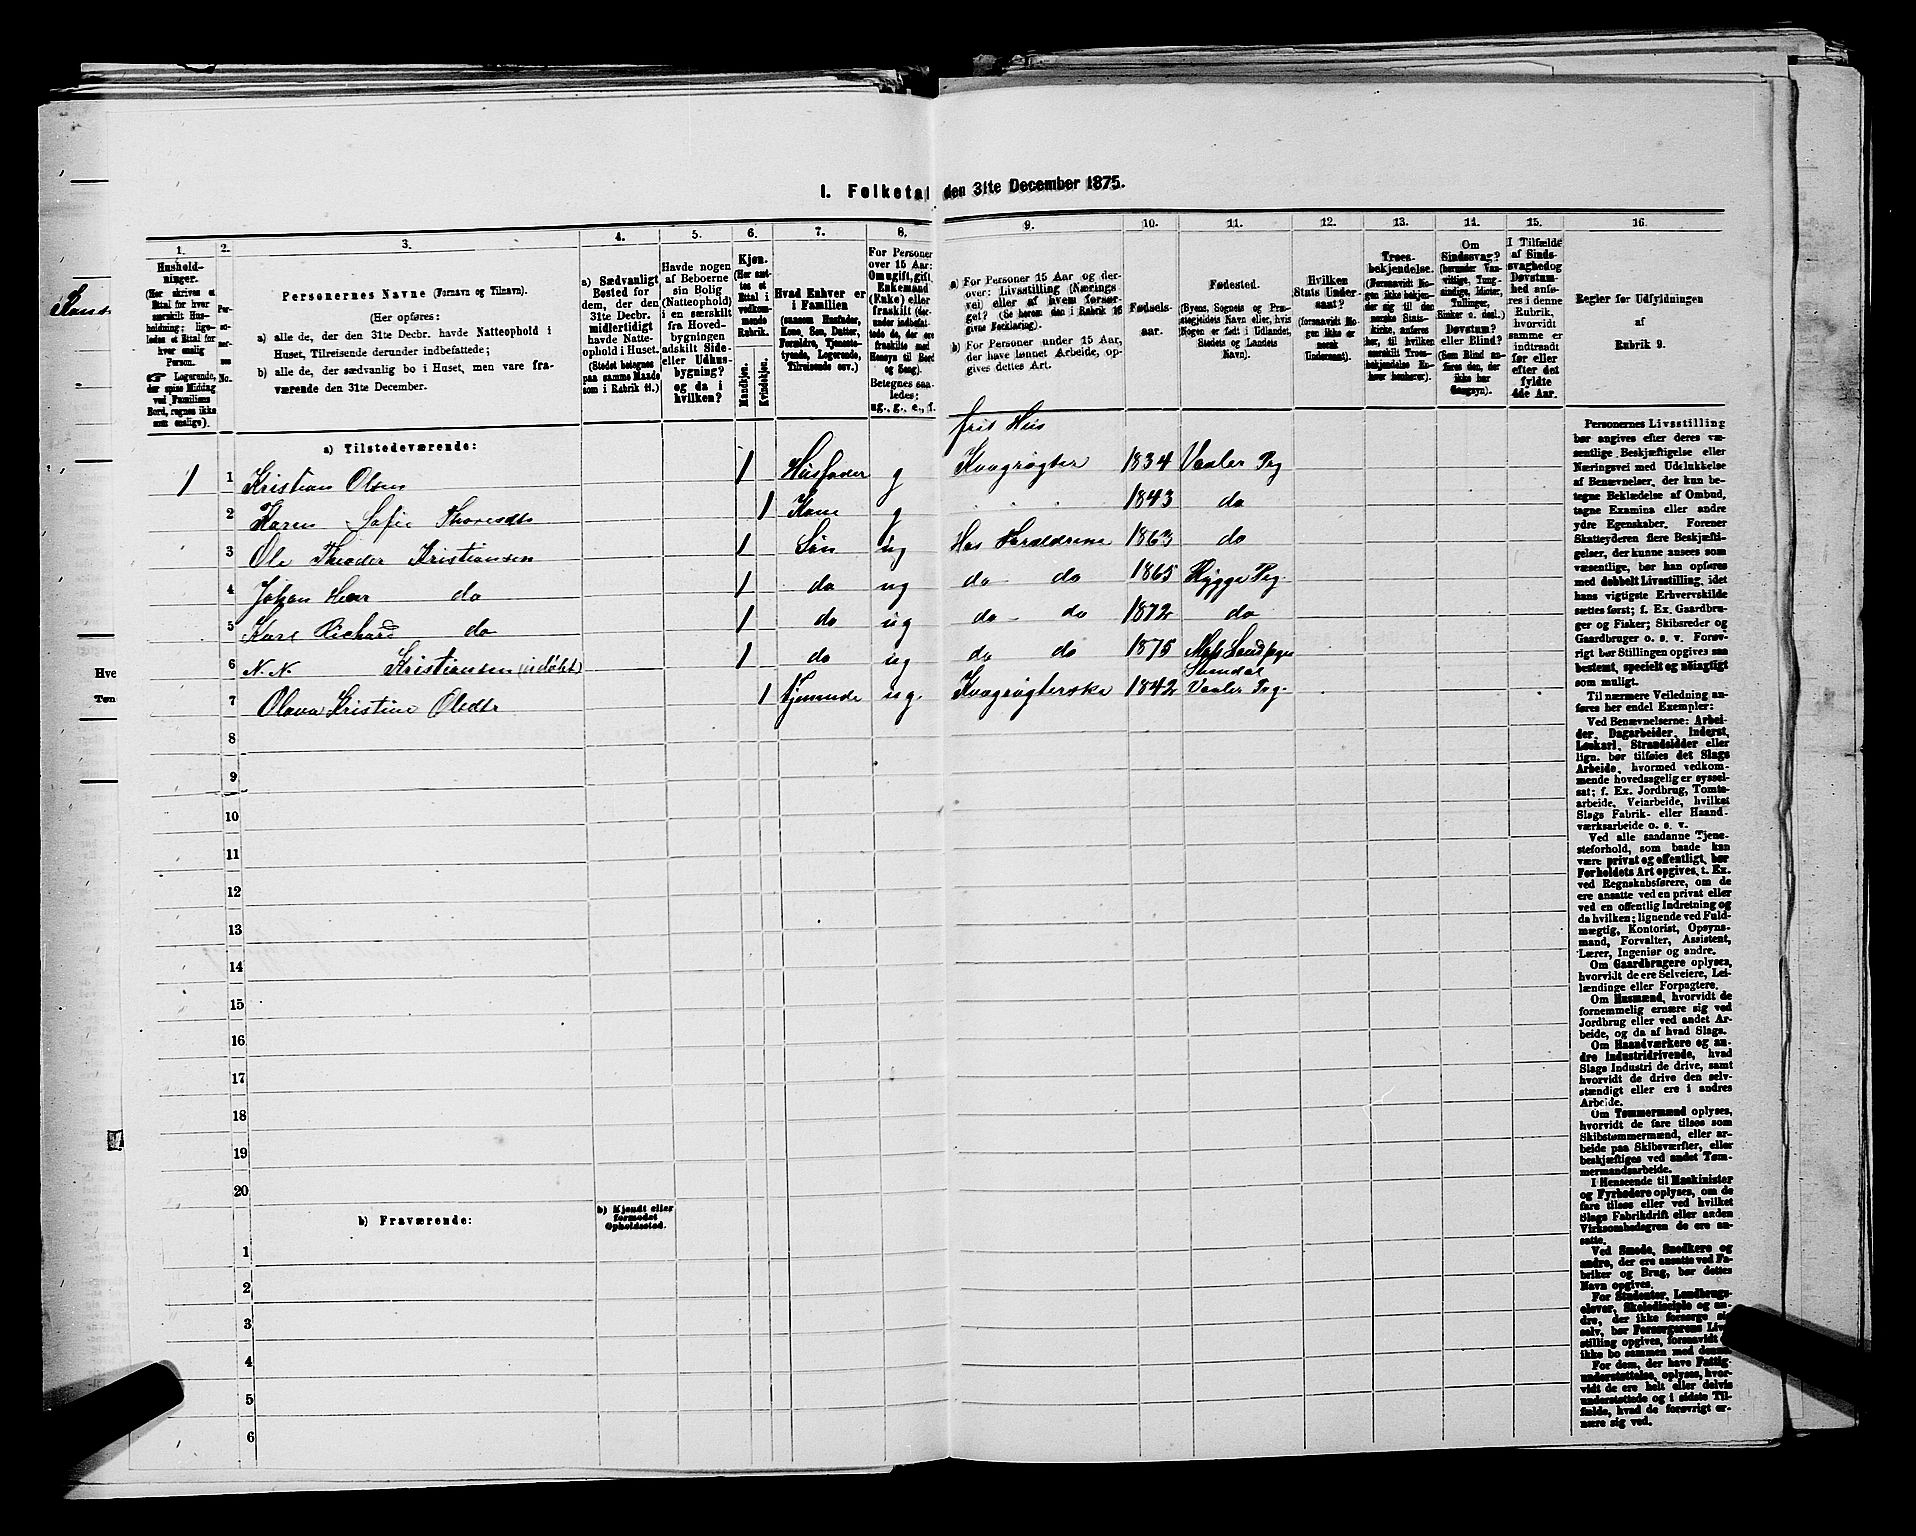 I. Folketal den 31te December 1875.
1. 2. 3. 4. 5. 6. 7. 8. 9. 10. 11. 12. 13. 14. 15. 16.
Husholdninger.
(Her skrives et Ettal for hver særskilt Husholdning; ligeledes et Ettal for hver enslig Person.
☞ Logerende, der spise Middag ved Familiens Bord, regnes ikke som enslige).
Personernes No.
Personernes Navne (Fornavn og Tilnavn).
(Her opføres:
a) alle de, der den 31te Decbr. havde Natteophold i Huset, Tilreisende derunder indbefattede;
b) alle de, der sædvanlig bo i Huset, men vare fraværende den 31te December.
a) Sædvanligt Bosted for dem, der den 31te Decbr. midlertidigt havde Natteophold i Huset.
(Stedet betegnes paa samme Maade som i Rubrik 11.)
Havde nogen af Beboerne sin Bolig (Natteophold) i en særskilt fra Hovedbygningen adskilt Side- eller Udhusbygning? og da i hvilken?
Kjøn.
(Her sættes et Ettal i vedkommende Rubrik.
Mandkjøn.
Kvindekjøn.
Hvad Enhver er i Familien
(saasom Husfader, Kone, Søn, Datter, Forældre, Tjenestetyende, Logerende, Tilreisende osv.)
For Personer over 15 Aar: Om ugift, gift, Enkemand (Enke) eller fraskilt
Betegnes saaledes:
ug., g., e., f.
a) For Personer 15 Aar og derover: Livsstilling (Næringsvei) eller af hvem forsørget? (Se herom den i Rubrik 16 givne Forklaring).
b) For Personer under 15 Aar, der have lønnet Arbeide, opgives dettes Art.
Fødselsaar.
Fødested.
(Byens, Sognets og Præstegjeldets Navn eller, hvis Nogen er født i Udlandet, Stedets og Landets Navn).
Hvilken Stats Undersaat?
(forsaavidt Nogen ikke er norsk Undersaat).
Troesbekjendelse.
(Forsaavidt Nogen ikke bekjender sig til den norske Statskirke, anføres her, til hvilken særskilt Troesbekjendelse Enhver henhører).
Om Sindssvag?
(herunder Vanvittige, Tungsindige, Idioter, Tullinger, Sinker o. desl.)
Døvstum? eller Blind?
(Som Blind anføres den, der ikke har Gangsyn).
I Tilfælde af Sindssvaghed og Døvstumhed anføres i denne Rubrik, hvorvidt samme er indtraadt før eller efter det fyldte 4de Aar.
Regler for Udfyldningen af Rubrik 9.
a) Tilstedeværende:
frit Hus
1 1 Kristian Olsen 1 Husfader g Kvægrøgter 1834 Vaaler Pg
2 Karen Sofie Thoresdtr 1 Kone g 1843 do
3 Ole Theodor Kristiansen 1 Søn ug Hos Forældrene 1863 do
4 Johan do 1 do ug do do 1865 Rygge Pg.
5 Karl Richard do 1 do ug do do 1872 do
6 N. N. Kristiansen (udøbt) 1 do ug do do 1875 Mos
7 Olava Kristine Olsdtr 1 Tjenende ug. Kvægrøgterske 1842 Vaaler Pg.
8
9
10
11
12
13
14
15
16
17
18
19
20
b) Fraværende:
b) Kjendt eller formodet Opholdssted.
1
2
3
4
5
6
Personernes Livsstilling bør angives efter deres væsentlige Beskjæftigelse eller Næringsvei med Udelukkelse af Benævnelser, der kun betegne Beklædelse af Ombud, tagne Examina eller andre ydre Egenskaber. Forener Skatteyderen flere Beskjæftigelser, der kunne ansees som væsentlige, bør han opføres med dobbelt Livsstilling, idet hans vigtigste Erhvervskilde sættes først; f. Ex. Gaardbruger og Fisker; Skibsreder og Gaardbruger o. s. v. Forøvrigt bør Stillingen opgives saa bestemt, specielt og nøiagtigt som muligt.
Til nærmere Veiledning anføres her endel Exempler:
Ved Benævnelserne: Arbeider, Dagarbeider, Inderst, Løskarl, Strandsidder eller lign. bør tilføies det Slags Arbeide, hvormed vedkommende hovedsagelig er sysselsat; f. Ex. Jordbrug, Tomtearbeide, Veiarbeide, hvilket Slags Fabrik- eller Haandværksarbeide o. s. v.
Ved alle saadanne Tjenesteforhold, som baade kan være privat og offentligt, bør Forholdets Art opgives, t. Ex. ved Regnskabsførere, om de ere ansatte ved en privat eller ved en offentlig Indretning og da hvilken; lignende ved Fuldmægtig, Kontorist, Opsynsmand, Forvalter, Assistent, Lærer, Ingeniør og andre.
Om Gaardbrugere oplyses, hvorvidt de ere Selveiere, Leilændinge eller Forpagtere.
Om Husmænd, hvorvidt de fornemmelig ernære sig ved Jordbrug eller ved andet Arbeide, og da af hvad Slags.
Om Haandværkere og andre Industridrivende, hvad Slags Industri de drive, samt hvorvidt de drive den selvstændigt eller ere i andres Arbeide.
Om Tømmermænd oplyses, hvorvidt de fare tilsøs som Skibstømmermænd, eller arbeide paa Skibsværfter, eller beskjæftiges ved andet Tømmermandsarbeide.
I Henseende til Maskinister og Fyrbødere oplyses, om de fare tilsøs eller ved hvilket Slags Fabrikdrift eller anden Virksomhedsgren de ere ansatte.
Ved Smede, Snedkere og andre, der ere ansatte ved Fabriker og Brug, bør dettes Navn opgives.
For Studenter, Landbrugselever, Skoledisciple og andre, der ikke forsørge sig selv, bør Forsørgerens Livsstilling opgives, forsaavidt de ikke bo sammen med denne.
For dem, der have Fattigunderstøttelse, oplyses, hvorvidt de ere helt eller delvis understøttede og i sidste Tilfælde, hvad de forøvrigt ernære sig ved.